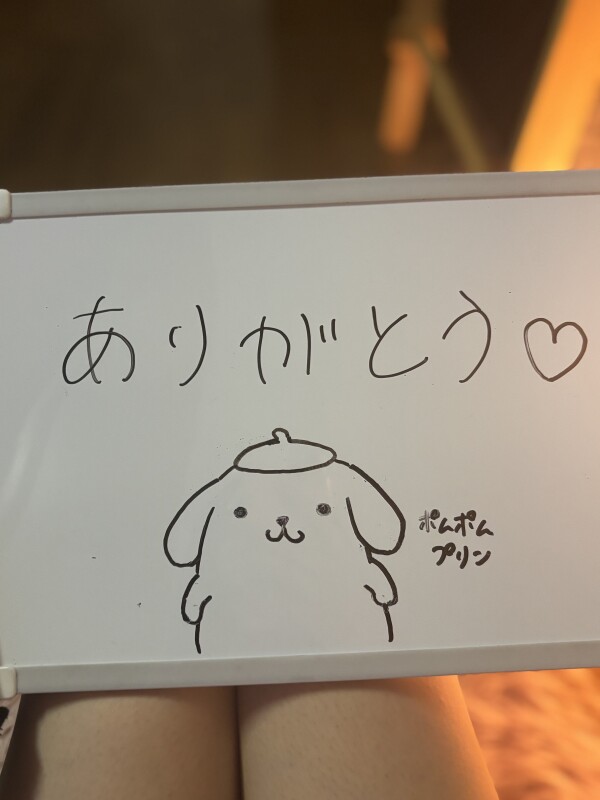 ありがとう♡
ポムポム
プリン